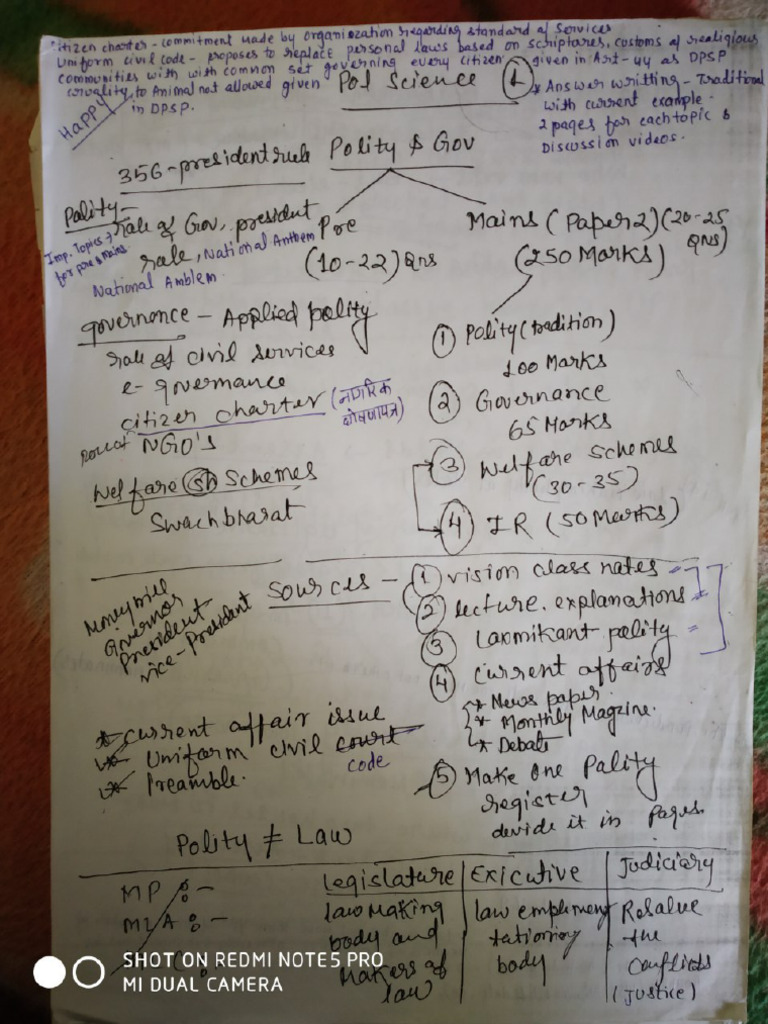 citizen charter - commitment made by organiozation regarding standard of Services
Uniform civil code - proposes to replace personal laws based on scriptares, customs of realigious
communities with with common set governing every citizen given in Art-44 as DPSP
to Animal not allowed given
in DPSP.
HAPPY
Pol Science 1
* Answer writting - Traditional
with current example.
2 pages for each topic &
Discussion videos.
356-president rule
Polity & Gov
Polity -
role of Gov, president
rule, National Anthem
National Amblem.
Imp. Topics
for pre & mains
Pre
(10-22) Qns
Mains (Paper 2) (20-25
Qns)
(250 Marks)
governence - Applied polity
role of civil services
e-governance
citizer charter (नागरिक
घोषणापत्र)
NGO's
Welfare sh Schemes
Swachbharat
1 Polity (tradition)
100 Marks
2 Governance
65 Marks
3 Welfare schemes
(30-35)
4 IR (50 Marks)
Money bill
Governor
President
vice-President
Sources - 1 vision class notes
2 lecture. explanations
3 Laxmikant polity
4 current affairs
* News paper.
* Monthly Magzine.
* Debate
5 Make one Pality
register
devide it in Pages.
* current affair issue
* Uniform civil court
code
* Preamble.
Polity ≠ Law
MP : -
MLA : -
Legislature | Exicutive | Judiciary
law making | law emplemen | Resalve
body and | tationing | the
Makers of | body | conflicts
law | (Justice)
SHOT ON REDMI NOTE5 PRO
MI DUAL CAMERA